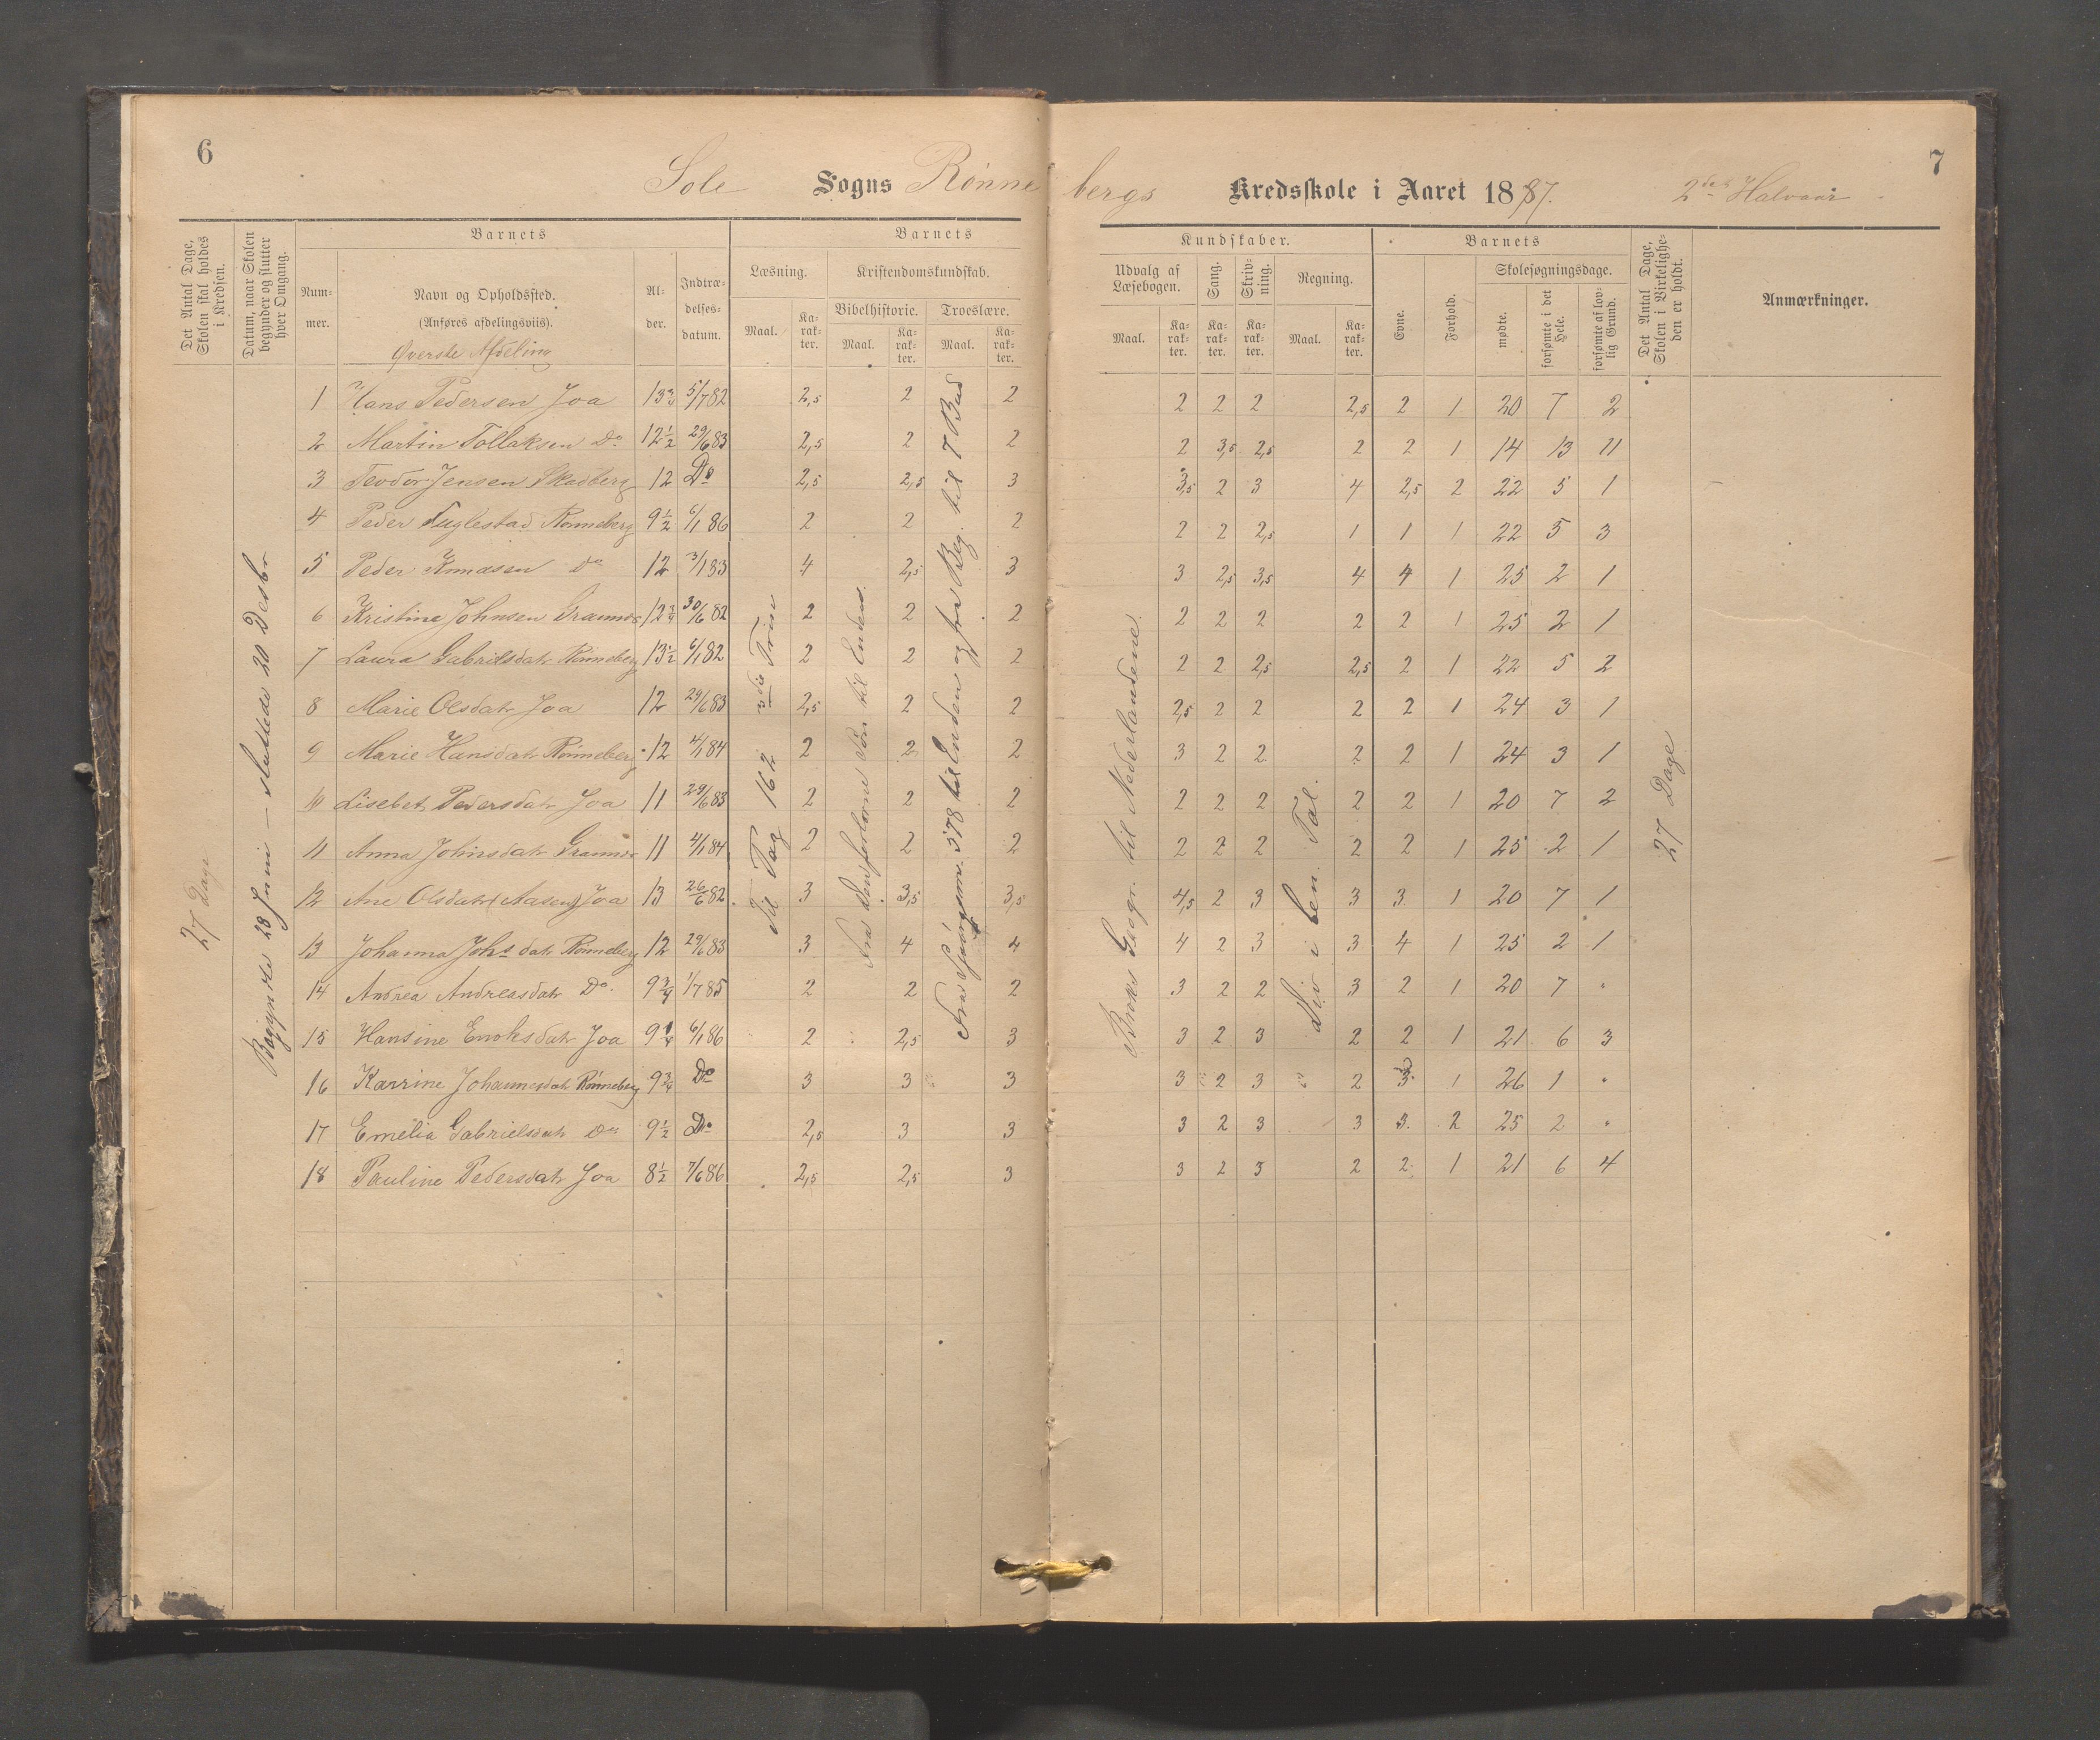 6
Sole Sogns Rönne
Det Antal Dage, Skolen skal holdes i Kredsen.
Datum, naar Skolen begynder og slutter hver Omgang.
Barnets
Num-mer.
Navn og Opholdssted.
(Anføres afdelingsviis).
Øverste Afdeling
Al-der.
Indtræ-delses-datum.
Barnets
Læsning.
Maal.
Ka-rak-ter.
Kristendomskundskab.
Bibelhistorie.
Maal.
Ka-rak-ter.
Troeslære.
Maal.
Ka-rak-ter.
27 Dage
Begyndte 28 Juni — sluttede 20 Desbr
Til Pag 162 3die Trin
Fra Den forlorne Søn til Enden.
Fra Spørgsm. 578 til Enden og fra Beg. til 7 Bud
1 Hans Pedersen Joa 13 3/4 5/7 82 2,5 2 2
2 Martin Tollaksen Do 12 1/2 29/6 83 2,5 2 2
3 Teodor Jensen Skadberg 12 Do 2,5 2,5 3
4 Peder Fuglestad Rønneberg 9 1/2 6/1 86 2 2 2
5 Peder Knudsen Do 12 3/1 83 4 2,5 3
6 Kristine Johnsen Grannes 12 3/4 30/6 82 2 2 2
7 Laura Gabrielsdatr Rønneberg 13 1/2 6/1 82 2 2 2
8 Marie Olsdatr Joa 12 29/6 83 2,5 2 2
9 Marie Hansdatr Rønneberg 12 4/1 84 2 2 2
10 Lisebet Pedersdatr Joa 11 29/6 83 2 2 2
11 Anna Johnsdatr Grannes 11 4/1 84 2 2 2
12 Ane Olsdatr (Aasen) Joa 13 26/6 82 3 3,5 3,5
13 Johanna Johs datr Rønneberg 12 29/6 83 3 4 4
14 Andrea Andreasdatr Do. 9 3/4 1/7 85 2 2 2
15 Hansine Enoksdatr Joa 9 1/4 6/1 86 2 2,5 3
16 Karrine Johannesdatr Rønneberg 9 3/4 Do 3 3 3
17 Emelia Gabrielsdatr Do 9 1/2 Do 2,5 3 3
18 Pauline Pedersdatr Joa 8 1/2 7/6 86 2,5 2,5 3
7
bergs Kredsskole i Aaret 1887. 2det Halvaar
Kundskaber.
Udvalg af Læsebogen.
Maal.
Ka-rak-ter.
Sang.
Ka-rak-ter.
Skriv-ning.
Ka-rak-ter.
Regning.
Maal.
Ka-rak-ter.
Barnets
Evne.
Forhold.
Skolesøgningsdage.
mødte.
forsømte i det Hele.
forsømte af lov-lig Grund.
Det Antal Dage, Skolen i Virkelighe-den er holdt.
Anmærkninger.
Broks Geogr. til Nederlandene.
Div i ben. Tal.
27 Dage
2 2 2 2,5 2 1 20 7 2
2 3,5 2,5 2 2 1 14 13 11
3,5 2 3 4 2,5 2 22 5 1
2 2 2,5 1 1 1 22 5 3
3 2,5 3,5 4 4 1 25 2 1
2 2 2 2 2 1 25 2 1
2 2 2,5 2,5 2 1 22 5 2
2,5 2 2 2 2 1 24 3 1
3 2 2 2 2 1 24 3 1
2 2 2 2 2 1 20 7 2
2 2 2 2 2 1 25 2 1
4,5 2 3 3 3 1 20 7 1
4 2 3 3 4 1 25 2 1
3 2 2 3 2 1 20 7 "
3 2 3 2 2 1 21 6 3
3 2 3 2 3 1 26 1 "
3 2 3 3 3 2 25 2 "
3 2 3 2 2 1 21 6 4